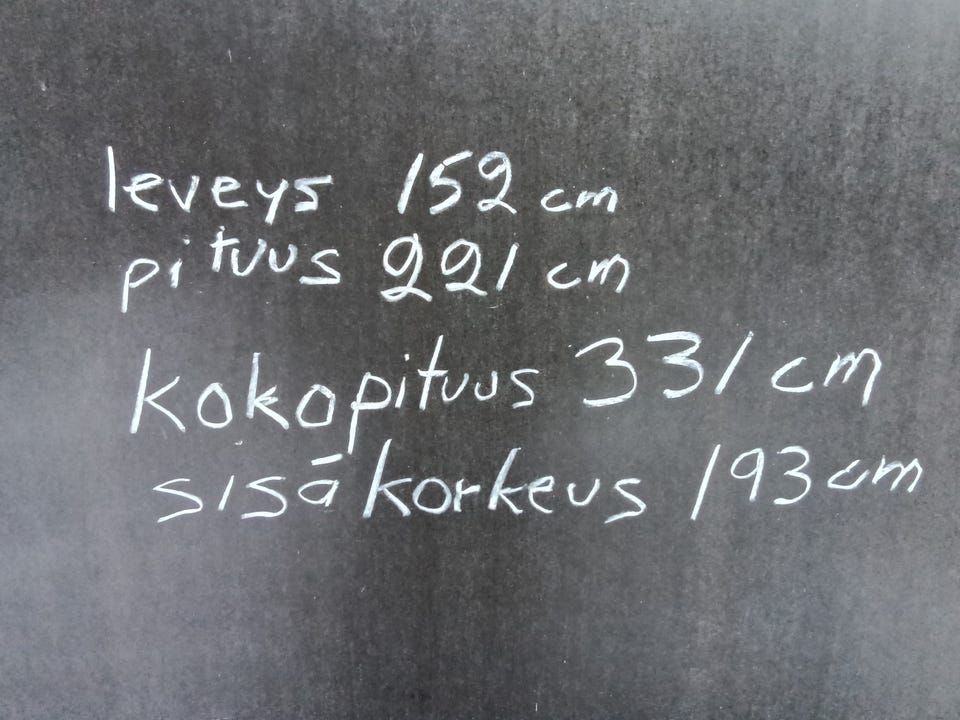 leveys 152 cm
pituus 221 cm
kokopituus 331 cm
sisäkorkeus 193 cm